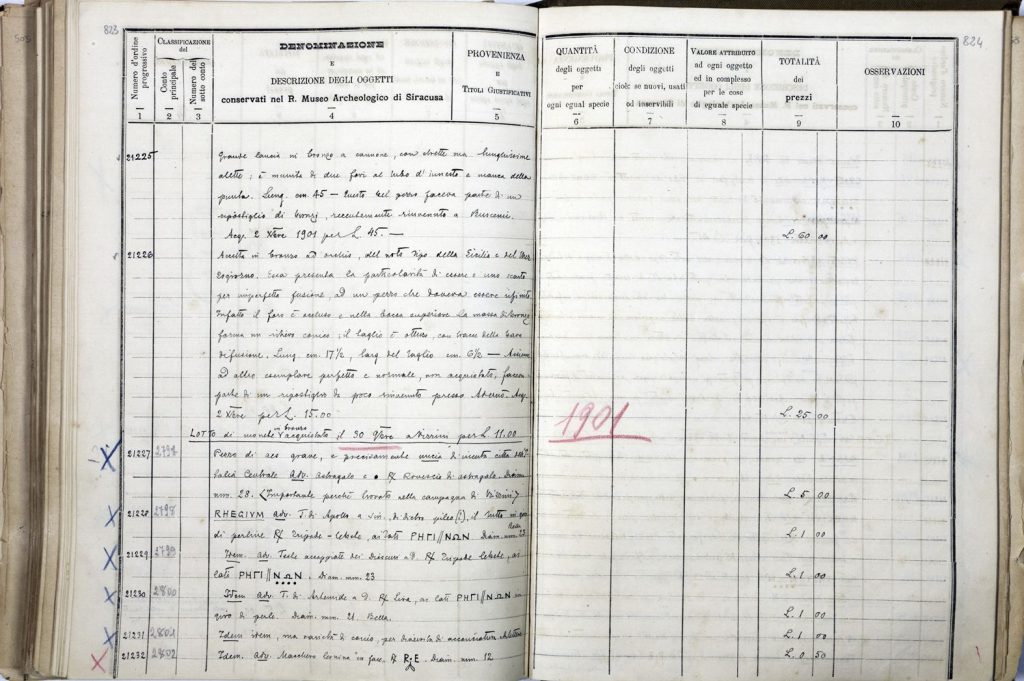 823
Numero d'ordine progressivo
1
CLASSIFICAZIONE del
Conto principale
2
Numero del sotto conto
3
DENOMINAZIONE
E
DESCRIZIONE DEGLI OGGETTI
conservati nel R. Museo Archeologico di Siracusa
4
PROVENIENZA
E
TITOLI GIUSTIFICATIVI
5
QUANTITÀ
degli oggetti
per
ogni egual specie
6
CONDIZIONE
degli oggetti
cioè: se nuovi, usati
od inservibili
7
VALORE ATTRIBUITO
ad ogni oggetto
ed in complesso
per le cose
di eguale specie
8
TOTALITÀ
dei
prezzi
9
OSSERVAZIONI
10
824
21225 Grande lancia in bronzo a cannone, con strette ma lunghissime
alette; è munita di due fori al tubo d'innesto e manca della
punta. Lung. cm. 45 — Questo bel pezzo faceva parte di un
ripostiglio di bronzi, recentemente rinvenuto a
Acq. 2 Xbre 1901 per L. 45. —
L. 60 00
21226 in bronzo ad occhio, del noto tipo della Sicilia e del Mez
zogiorno. Essa presenta la particolarità di essere uno scarto
per imperfetta fusione, ad un pezzo che doveva essere rifinito.
Infatti il foro è occluso e nella bocca superiore la massa di bronzo
forma un rilievo conico; il taglio è ottuso, con tracce delle bave
di fusione. Lung. cm. 17½, larg. del taglio cm. 6½ — Assieme
ad altro esemplare perfetto e normale, non acquistato, faceva
parte di un ripostiglio di poco rinvenuto presso Adernò. Acq.
2 Xbre per L. 15.00
L. 25 00
LOTTO di monete in bronzo acquistato il 30 9bre a Vizzini per L. 11.00
1901
21227 2797 Pezzo di aes grave, e precisamente uncia di incerta città dell'I
talia Centrale Adv. astragalo e • R/ Rovescio di astragalo. Diam.
mm. 28. (Importante perchè trovato nella campagna di Vizzini)
L. 5 00
21228 2798 RHEGIVM adv. T. di Apollo a sin., di dietro pileo (?), il tutto in giro
di perline R/ Tripode-lebete, ai lati ΡΗΓΙ // ΝΩΝ. Diam. mm. 23
Bella
L. 1 00
21229 2799 Idem. adv. Teste accoppiate dei Dioscuri a D. R/ Tripode lebete, ai
lati ΡΗΓΙ // ΝΩΝ. Diam. mm. 23
L. 1 00
21230 2800 Idem adv. T. di Artemide a D. R/ Lira, ai lati ΡΗΓΙ // ΝΩΝ in
giro di perle. Diam. mm. 21. Bella.
L. 1 00
21231 2801 Idem idem, ma varietà di conio, per diversità di acconciatura.
L. 1 00
21232 2802 Idem. adv. Maschera leonina in facc. R/ R E. Diam. mm. 12
L. 0 50